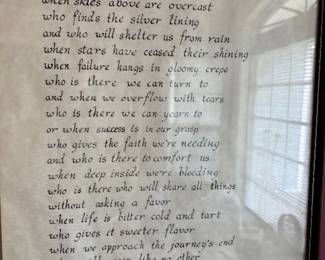 when skies above are overcast
who finds the silver lining
and who will shelter us from rain
when stars have ceased their shining
when failure hangs in gloomy crepe
who is there we can turn to
and when we overflow with tears
who is there we can yearn to
or when success is in our grasp
who gives the faith we're needing
and who is there to comfort us
when deep inside we're bleeding
who is there who will share all things
without asking a favor
when life is bitter cold and tart
who gives it sweeter flavor
when we approach the journey's end
like no other